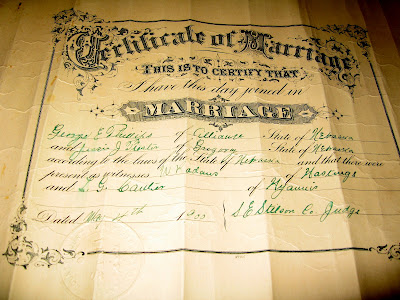 Certificate of Marriage
THIS IS TO CERTIFY THAT
I have this day joined in
MARRIAGE
George E of Alliance State of Nebraska
and of Gregory State of Nebraska
according to the laws of the State of Nebraska and that there were
present as witnesses of Hastings
and of
Dated 1900 S.E. Stilson Co. Judge